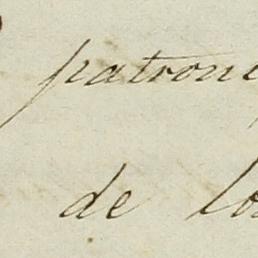 patrone
de lo